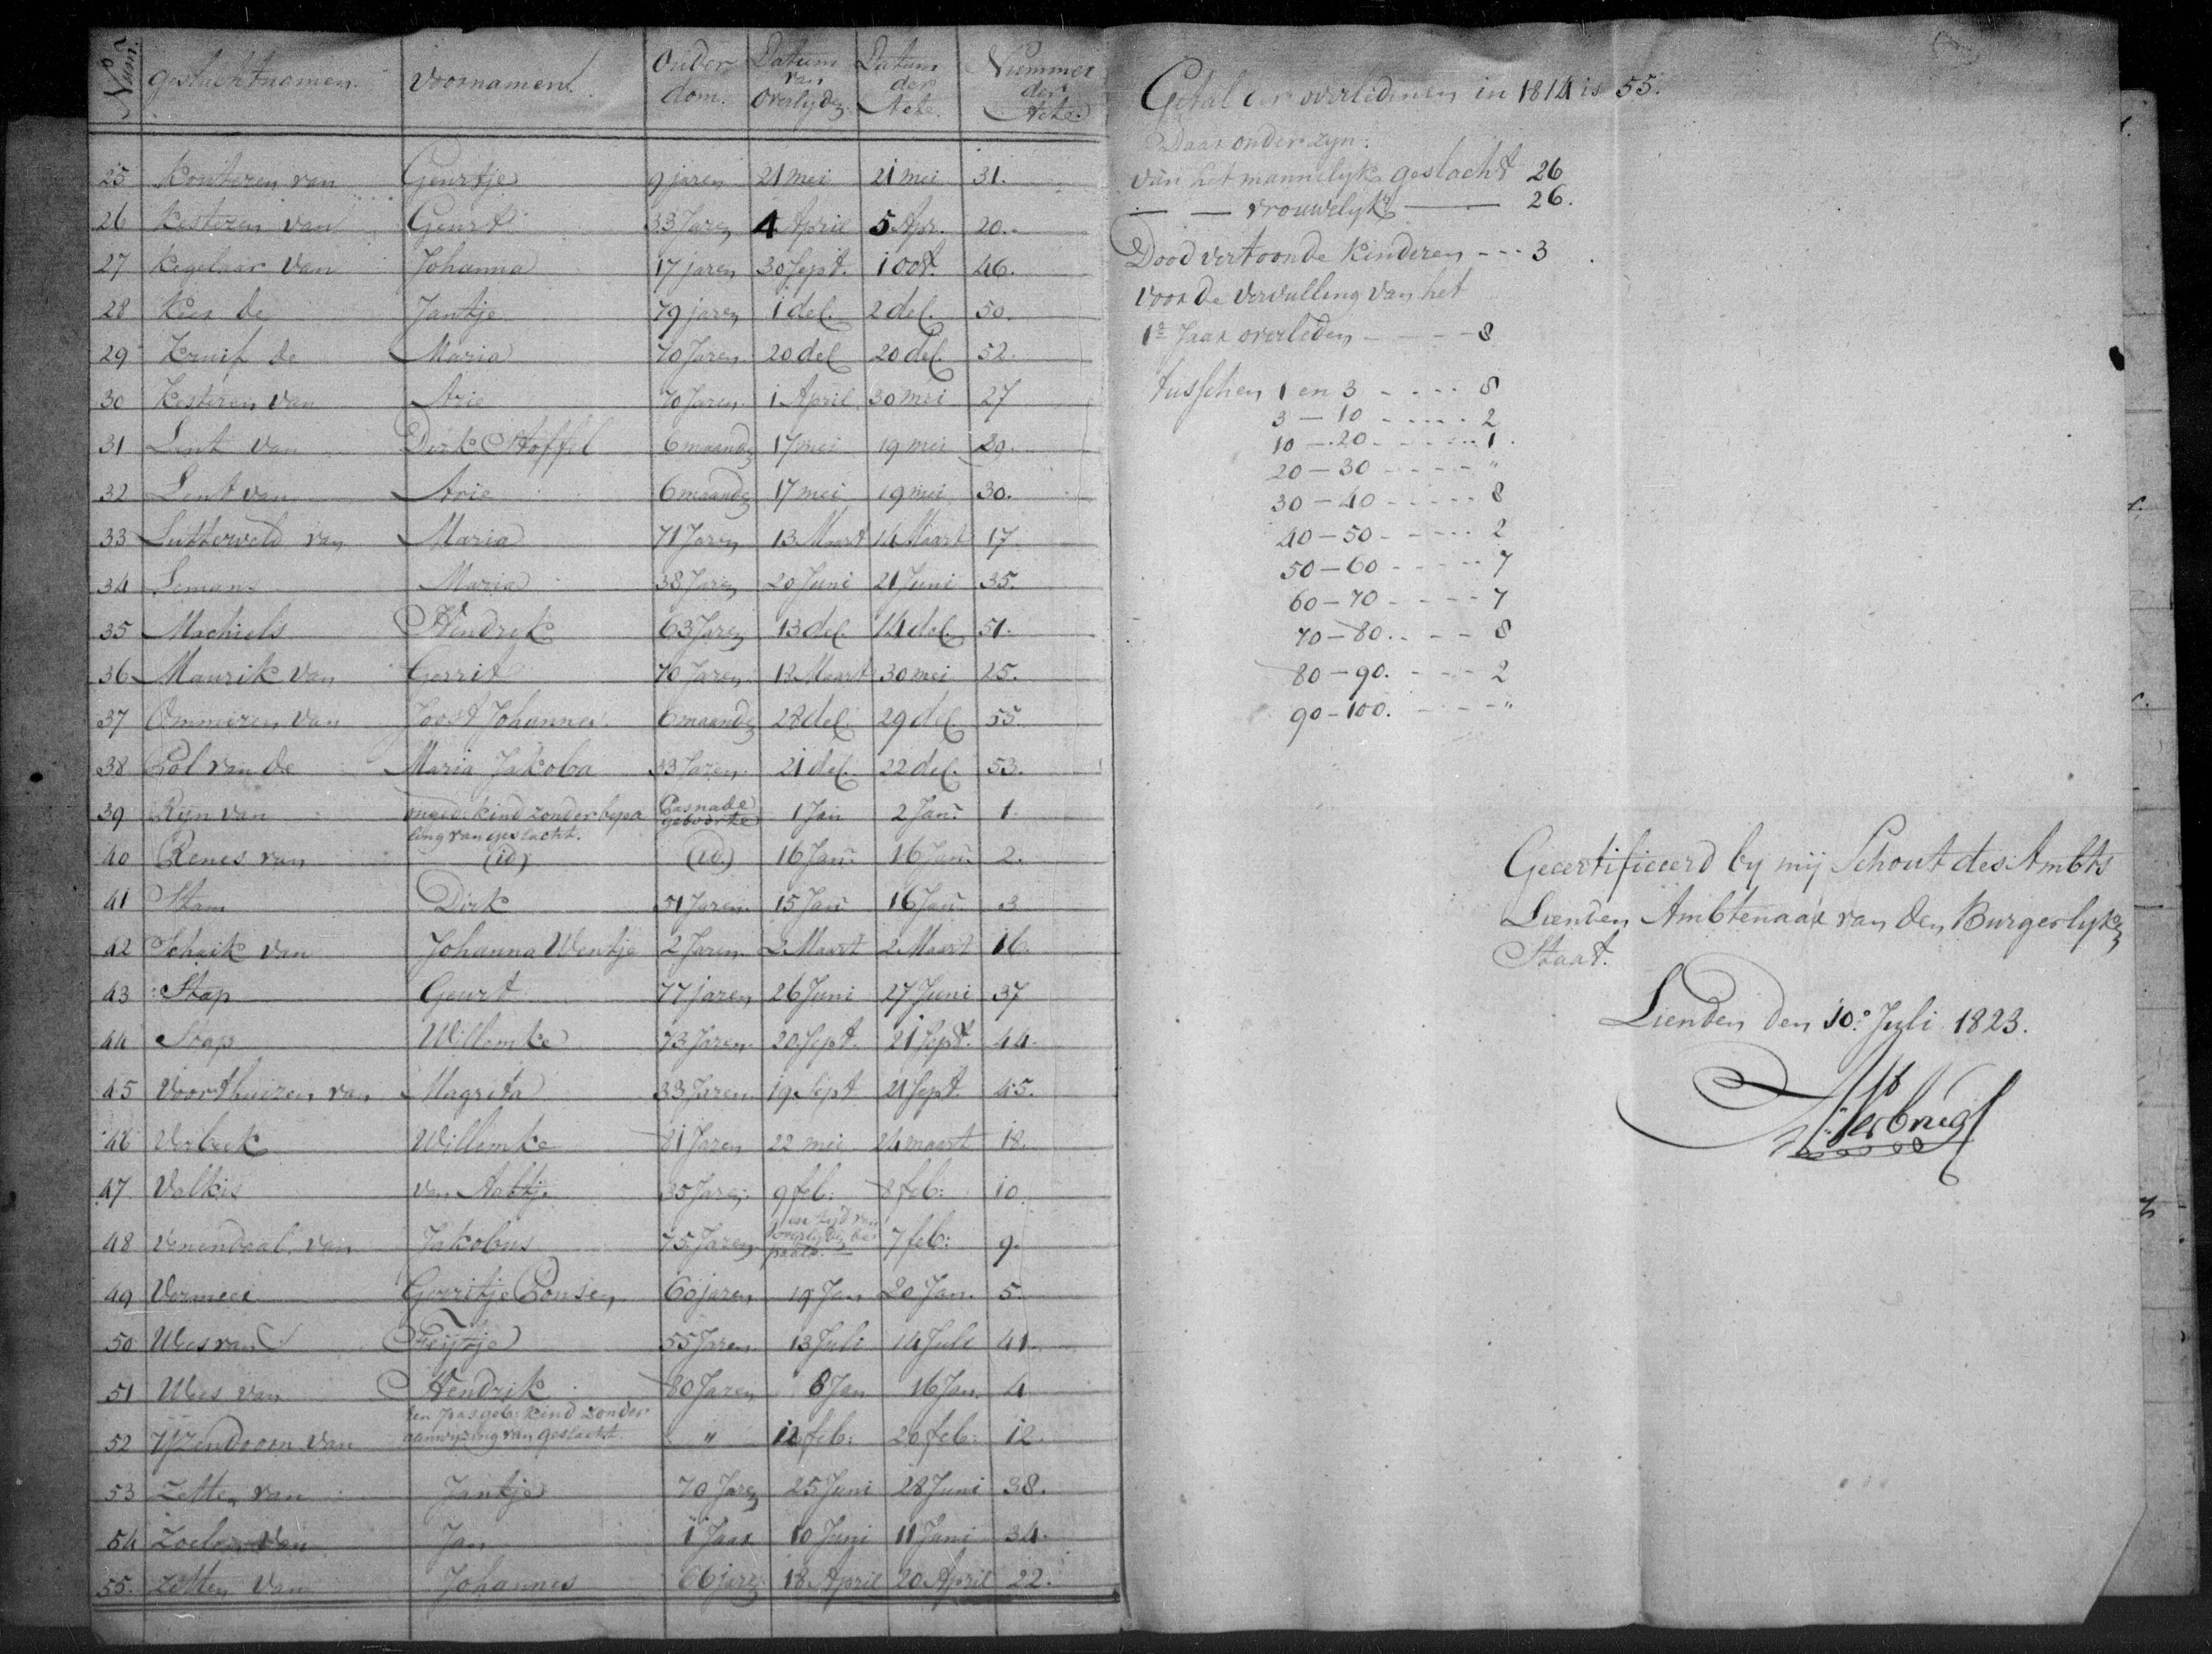 Num. geslachtnamen. voornamen. Ouderdom. Datum van Overlyden. Datum der Acte. Nummer der Acte.
25 Kesteren van Geurtje 9 jaren 21 mei 21 mei 31.
26 Kesteren van Geurt 33 Jaren 4 April 5 Apr. 20.
27 Kegelaar van Johanna 17 jaren 30 Sept. 1 Oct. 46.
28 Kees de Jantje 79 jaren 1 dec. 2 dec. 50.
29 Kruif de Maria 70 Jaren 20 dec 20 dec. 52.
30 Kesteren van Arie 70 Jaren 1 April 30 mei 27
31 Lent van Dirk Stoffel 6 maanden 17 mei 19 mei 29.
32 Lent van Arie 6 maanden 17 mei 19 mei 30.
33 Lutterveld van Maria 71 Jaren 13 Maart 14 Maart 17
34 Lemans Maria 38 Jaren 20 Juni 21 Juni 35.
35 Machiels Hendrik 63 Jaren 13 dec. 14 dec. 51.
36 Maurik van Gerrit 70 Jaren 12 Maart 30 mei 25.
37 Ommeren van Joost Johannes. 6 maanden 28 dec. 29 dec. 55.
38 Pol van de Maria Jakoba 33 Jaren 21 dec. 22 dec. 53.
39 Ryn van kind zonder bepaling van geslacht. Pas na de geboorte 1 Jan 2 Jan: 1.
40 Renes van (id) (id.) 16 Jan: 16 Jan: 2.
41 Stam Dirk 51 Jaren 15 Jan: 16 Jan: 3
42 Schaik van Johanna Wentje 2 Jaren 2 Maart 2 Maart 16.
43 Stap Geurt 77 jaren 26 Juni 27 Juni 37
44 Stap Willemke 73 Jaren 20 Sept. 21 Sept. 44.
45 Voorthuizen van Magreta 33 Jaren 19 Sept 21 Sept. 45.
46 Verbeek Willemke 81 Jaren 22 mei 24 maart 18.
47 Valkis van Aaltje 35 Jaren 9 feb: 8 feb: 10.
48 Venendaal van Jakobus 75 Jaren geen tyd van overlyden bepaald. 7 feb: 9.
49 Vermeer Gerritje Pousen 60 jaren 19 Jan 20 Jan. 5.
50 Wes van Feijtje 55 Jaren 13 Juli 14 Juli 41.
51 Wees van Hendrik 80 Jaren 8 Jan 16 Jan. 4
52 Yzendoorn van een pasgeb: kind zonder aanwyzing van geslacht. " 12 feb: 20 feb: 12.
53 Zetten van Jantje 70 Jaren 25 Juni 28 Juni 38.
54 Zoelen van Jan 1 Jaar 10 Juni 11 Juni 34.
55. Zetten van Johannes 66 jaren 18 April 20 April 22.
Getal der overledenen in 1814 is 55.
Daar onder zyn:
van het mannelyk geslacht 26
— — vrouwelyk —— 26.
Dood vertoonde kinderen --- 3
voor de vervulling van het
1e Jaar overleden ---- 8
tusschen 1 en 3 ---- 8
3 — 10 ----- 2
10 — 20 ----- 1.
20 — 30 ----- "
30 — 40 ----- 8
40 — 50 ----- 2
50 — 60 ----- 7
60 — 70 ---- 7
70 — 80. --- 8
80 — 90. --- 2
90 — 100. --- "
Gecertificeerd by mij Schout des Ambts
Lienden Ambtenaar van den Burgerlyken
Staat.
Lienden den 10e. Juli 1823.